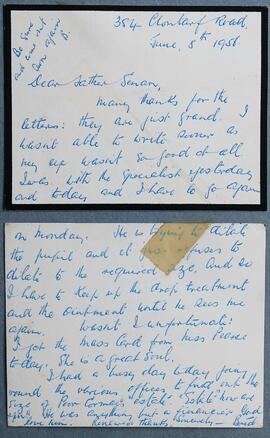 384 Clontarf Road.
June, 8th 1951.
Be sure
and come out
soon again
Dear Father Senan,
Many thanks for the
letters: they are just grand. I
wasn't able to write sooner as
my eye wasn't so good at all
I was with the Specialist yesterday
and today and I have to go again
on Monday. He is trying to dilate
the pupil and it refuses to
dilate to the required size. And so
I have to keep up the drop treatment
and the ointment until he sees me
again. Wasn't I unfortunate!
I got the Mass Card from Miss Pearse
today. She is a great soul.
I had a busy day today going
round to various offices to find out the
size of Poor Cormac's estate. Estate how are
you! He was anything but a financier. God
love him. Renewed thanks. Sincerely —